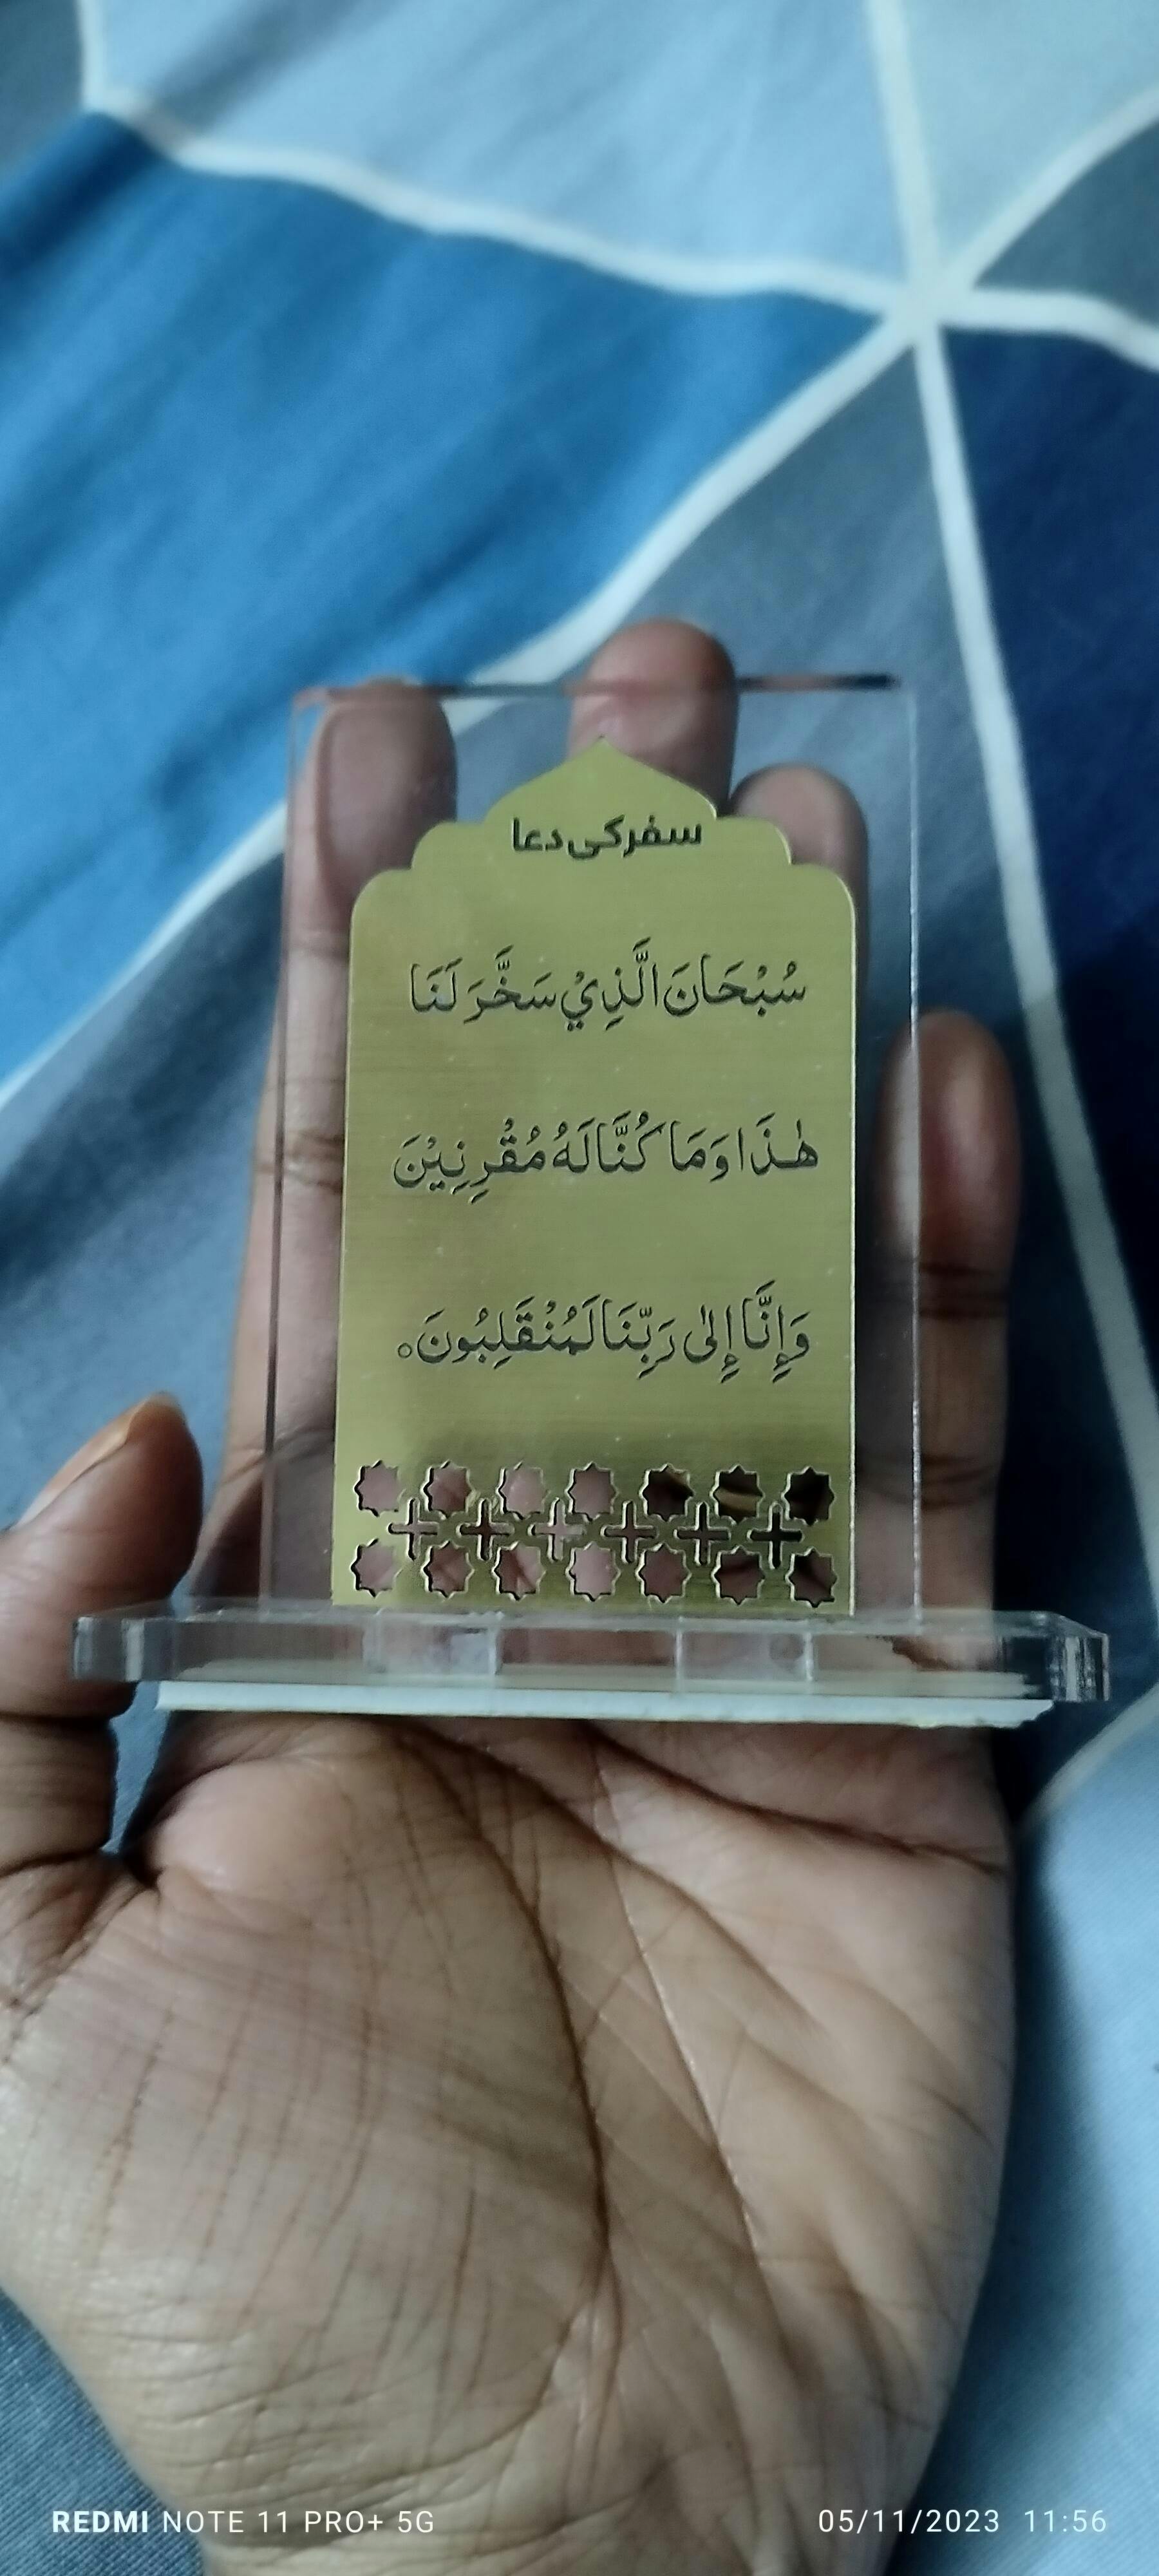 سفر کی دعا
سُبْحَانَ الَّذِيْ سَخَّرَ لَنَا
هٰذَا وَمَا كُنَّا لَهُ مُقْرِنِيْنَ
وَإِنَّا إِلٰى رَبِّنَا لَمُنْقَلِبُونَ۝
REDMI NOTE 11 PRO+ 5G
05/11/2023 11:56